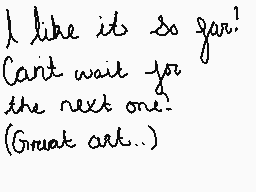 I like it so far!
Can't wait for
the next one!
(Great art..)